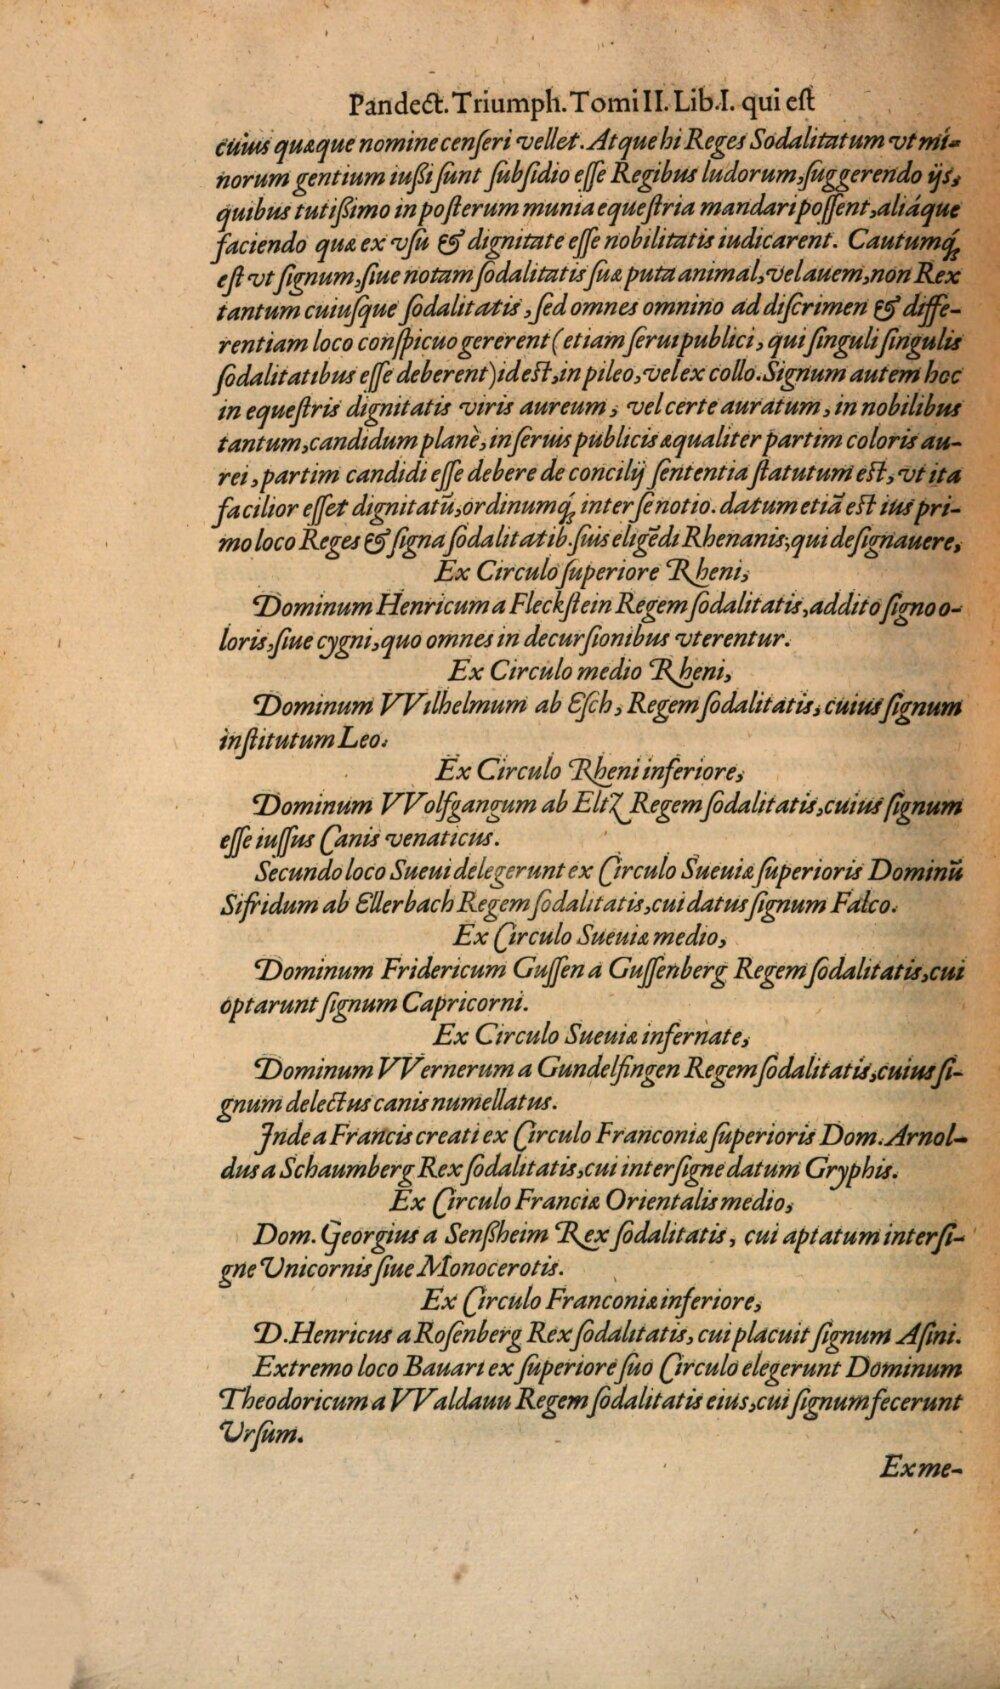 Pandect. Triumph. Tomi II. Lib. I. qui est
cuius quæque nomine censeri vellet. Atque hi Reges Sodalitatum vt mi-
norum gentium iußi sunt subsidio esse Regibus ludorum, suggerendo ijs,
quibus tutißimo in posterum munia equestria mandari possent, aliáque
faciendo quæ ex vsu & dignitate esse nobilitatis iudicarent. Cautumq́;
est vt signum, siue notam sodalitatis suæ puta animal, vel auem, non Rex
tantum cuiusque sodalitatis, sed omnes omnino ad discrimen & diffe-
rentiam loco conspicuo gererent (etiam serui publici, qui singuli singulis
sodalitatibus esse deberent) id est, in pileo, vel ex collo. Signum autem hoc
in equestris dignitatis viris aureum, vel certe auratum, in nobilibus
tantum, candidum planè, in seruis publicis æqualiter partim coloris au-
rei, partim candidi esse debere de concilij sententia statutum est, vt ita
facilior esset dignitatũ, ordinumq́; inter se notio. datum etiã est ius pri-
mo loco Reges & signa sodalitatib. suis eligẽdi Rhenanis, qui designauere,
Ex Circulo superiore Rheni,
Dominum Henricum a Fleckstein Regem sodalitatis, addito signo o-
loris, siue cygni, quo omnes in decursionibus vterentur.
Ex Circulo medio Rheni,
Dominum VVilhelmum ab Esch, Regem sodalitatis, cuius signum
institutum Leo.
Ex Circulo Rheni inferiore,
Dominum VVolfgangum ab Eltz Regem sodalitatis, cuius signum
esse iussus Canis venaticus.
Secundo loco Sueui delegerunt ex Circulo Sueuiæ superioris Dominũ
Sifridum ab Ellerbach Regem sodalitatis, cui datus signum Falco.
Ex Circulo Sueuiæ medio,
Dominum Fridericum Gussen a Gussenberg Regem sodalitatis, cui
optarunt signum Capricorni.
Ex Circulo Sueuiæ infernate,
Dominum VVernerum a Gundelfingen Regem sodalitatis, cuius si-
gnum delectus canis numellatus.
Inde a Francis creati ex Circulo Franconiæ superioris Dom. Arnol-
dus a Schaumberg Rex sodalitatis, cui intersigne datum Gryphis.
Ex Circulo Franciæ Orientalis medio,
Dom. Georgius a Senßheim Rex sodalitatis, cui aptatum intersi-
gne Vnicornis siue Monocerotis.
Ex Circulo Franconiæ inferiore,
D. Henricus a Rosenberg Rex sodalitatis, cui placuit signum Asini.
Extremo loco Bauari ex superiore suo Circulo elegerunt Dominum
Theodoricum a VValdauu Regem sodalitatis eius, cui signum fecerunt
Vrsum.
Ex me-